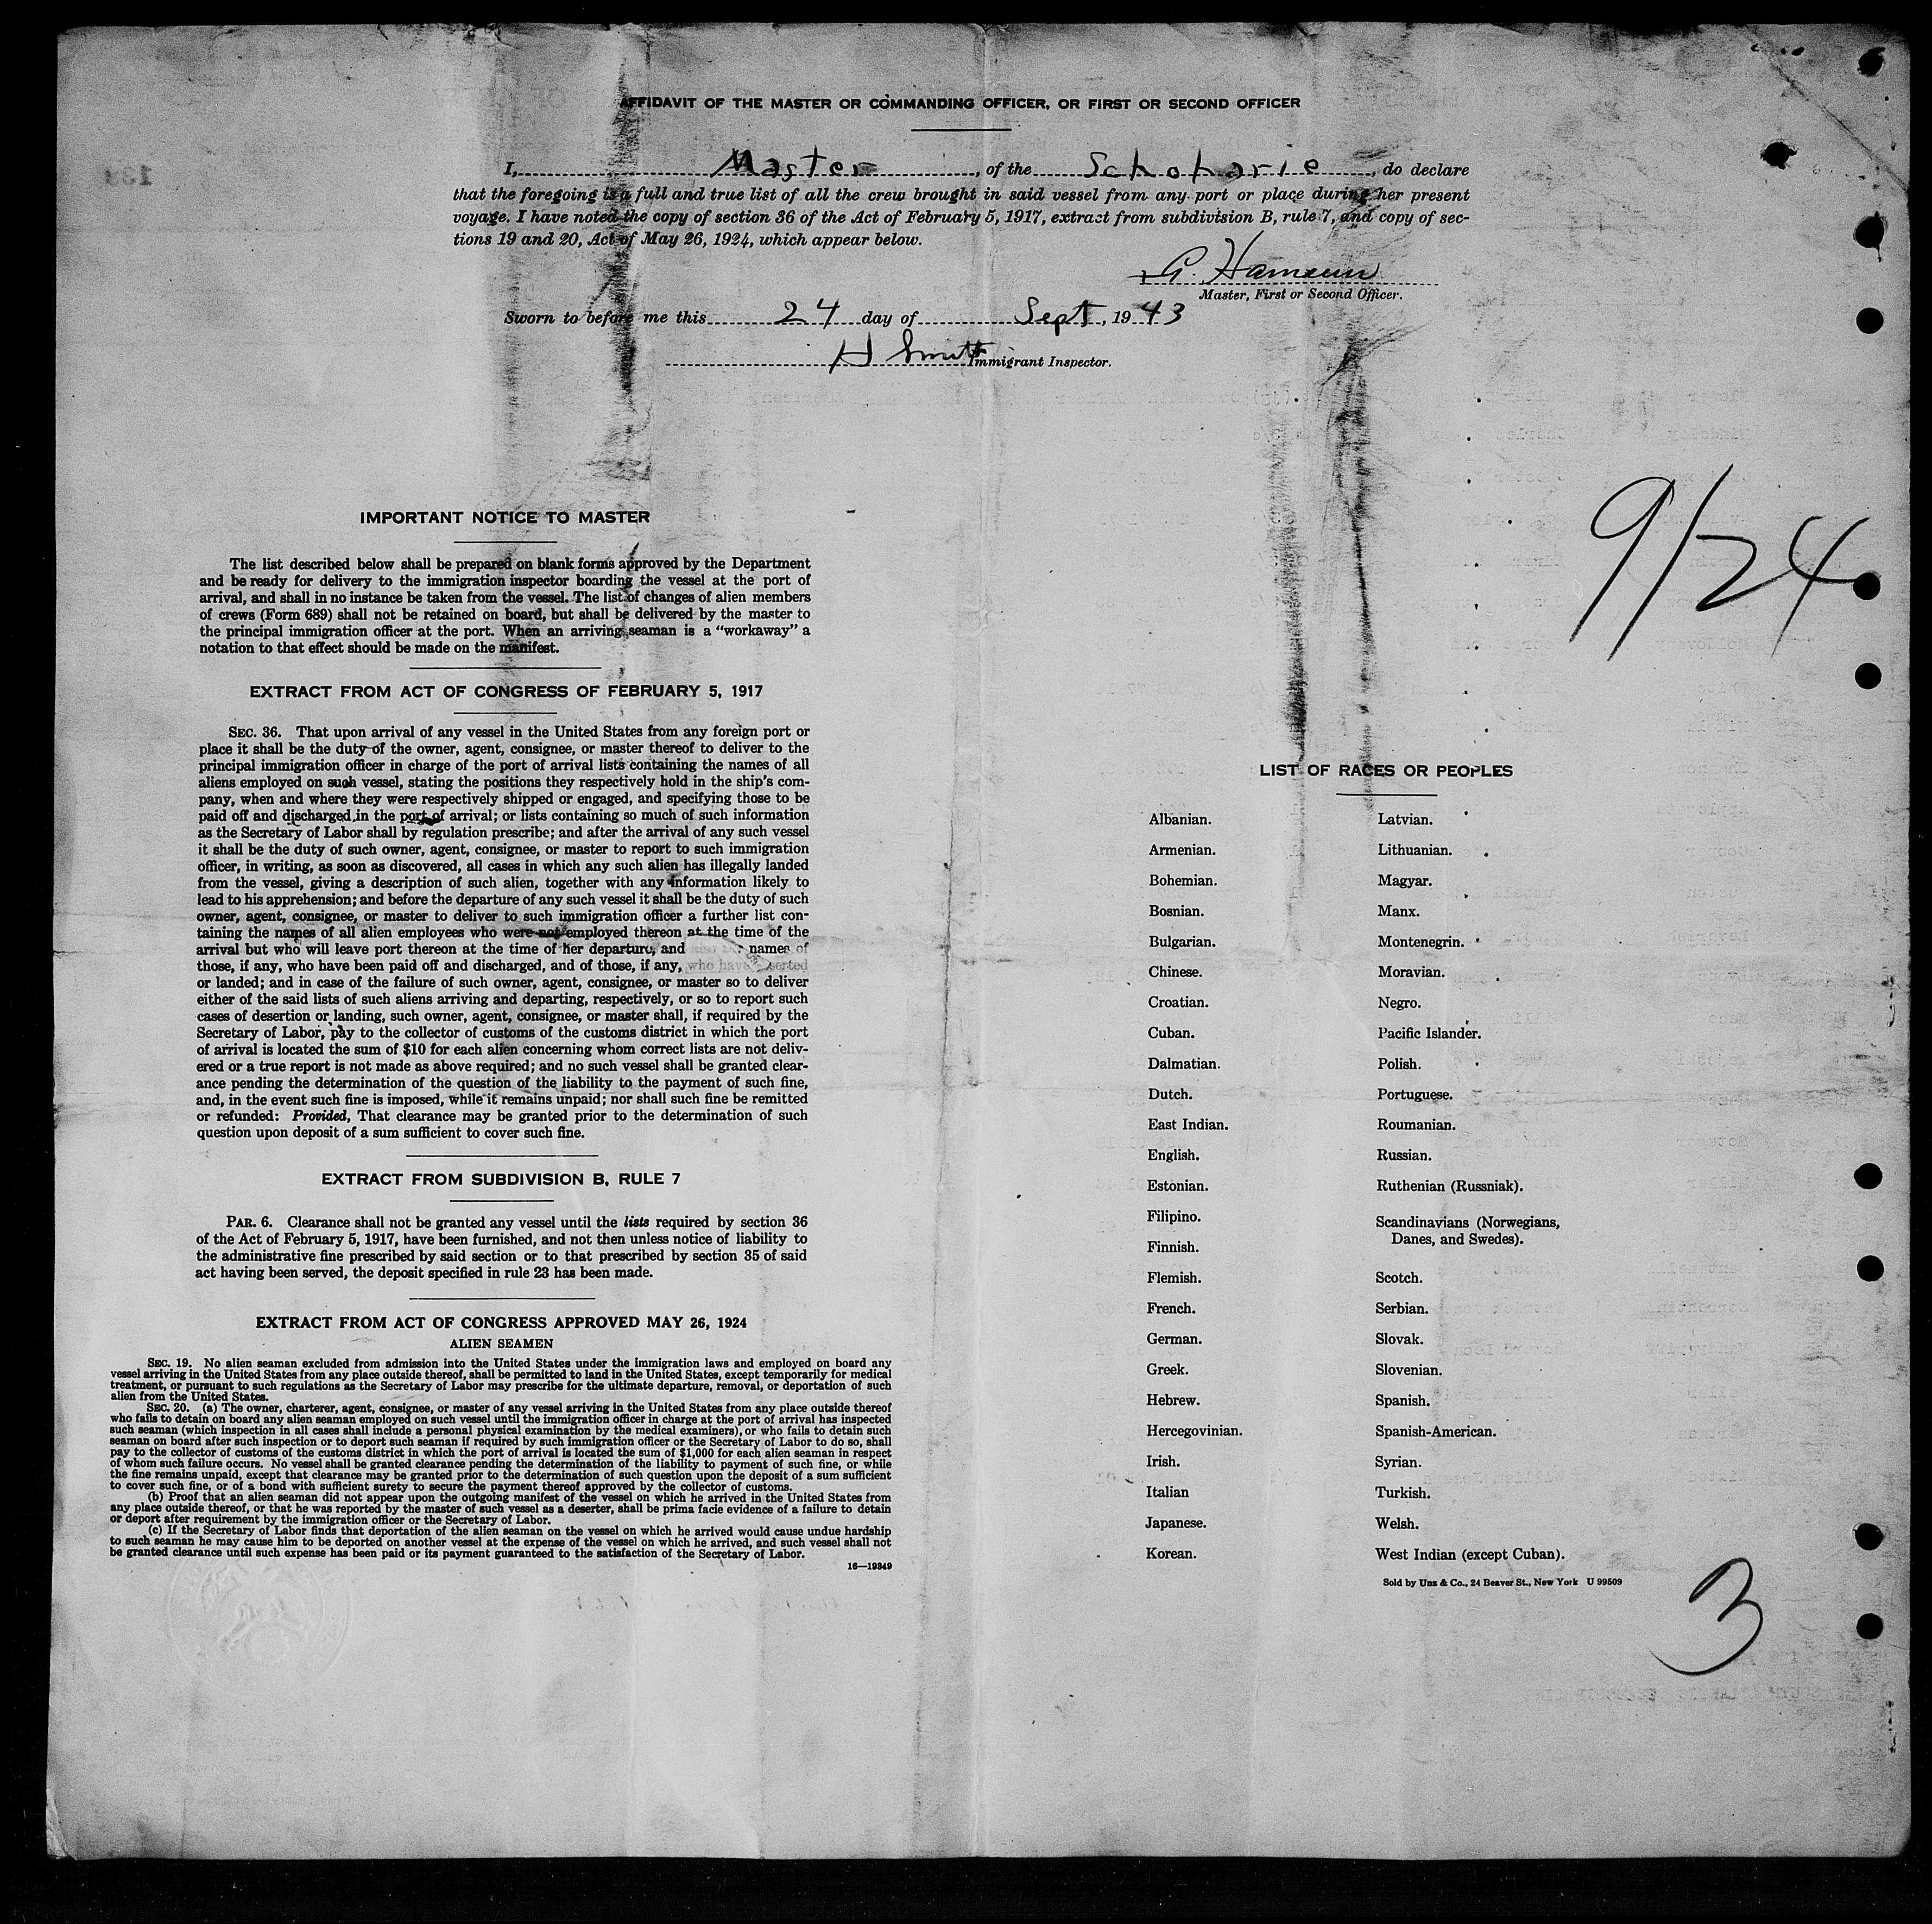 AFFIDAVIT OF THE MASTER OR COMMANDING OFFICER, OR FIRST OR SECOND OFFICER
I, Master, of the Schoharie, do declare
that the foregoing is a full and true list of all the crew brought in said vessel from any port or place during her present
voyage. I have noted the copy of section 36 of the Act of February 5, 1917, extract from subdivision B, rule 7, and copy of sec-
tions 19 and 20, Act of May 26, 1924, which appear below.
G.
Master, First or Second Officer.
Sworn to before me this 24 day of Sept, 1943
H Smith Immigrant Inspector.
9/24
IMPORTANT NOTICE TO MASTER
The list described below shall be prepared on blank forms approved by the Department
and be ready for delivery to the immigration inspector boarding the vessel at the port of
arrival, and shall in no instance be taken from the vessel. The list of changes of alien members
of crews (Form 689) shall not be retained on board, but shall be delivered by the master to
the principal immigration officer at the port. When an arriving seaman is a "workaway" a
notation to that effect should be made on the manifest.
EXTRACT FROM ACT OF CONGRESS OF FEBRUARY 5, 1917
SEC. 36. That upon arrival of any vessel in the United States from any foreign port or
place it shall be the duty of the owner, agent, consignee, or master thereof to deliver to the
principal immigration officer in charge of the port of arrival lists containing the names of all
aliens employed on such vessel, stating the positions they respectively hold in the ship's com-
pany, when and where they were respectively shipped or engaged, and specifying those to be
paid off and discharged in the port of arrival; or lists containing so much of such information
as the Secretary of Labor shall by regulation prescribe; and after the arrival of any such vessel
it shall be the duty of such owner, agent, consignee, or master to report to such immigration
officer, in writing, as soon as discovered, all cases in which any such alien has illegally landed
from the vessel, giving a description of such alien, together with any information likely to
lead to his apprehension; and before the departure of any such vessel it shall be the duty of such
owner, agent, consignee, or master to deliver to such immigration officer a further list con-
taining the names of all alien employees who were not employed thereon at the time of the
arrival but who will leave port thereon at the time of her departure, and names of
those, if any, who have been paid off and discharged, and of those, if any, who have deserted
or landed; and in case of the failure of such owner, agent, consignee, or master so to deliver
either of the said lists of such aliens arriving and departing, respectively, or so to report such
cases of desertion or landing, such owner, agent, consignee, or master shall, if required by the
Secretary of Labor, pay to the collector of customs of the customs district in which the port
of arrival is located the sum of $10 for each alien concerning whom correct lists are not deliv-
ered or a true report is not made as above required; and no such vessel shall be granted clear-
ance pending the determination of the question of the liability to the payment of such fine,
and, in the event such fine is imposed, while it remains unpaid; nor shall such fine be remitted
or refunded: Provided, That clearance may be granted prior to the determination of such
question upon deposit of a sum sufficient to cover such fine.
EXTRACT FROM SUBDIVISION B, RULE 7
PAR. 6. Clearance shall not be granted any vessel until the lists required by section 36
of the Act of February 5, 1917, have been furnished, and not then unless notice of liability to
the administrative fine prescribed by said section or to that prescribed by section 35 of said
act having been served, the deposit specified in rule 23 has been made.
EXTRACT FROM ACT OF CONGRESS APPROVED MAY 26, 1924
ALIEN SEAMEN
SEC. 19. No alien seaman excluded from admission into the United States under the immigration laws and employed on board any
vessel arriving in the United States from any place outside thereof, shall be permitted to land in the United States, except temporarily for medical
treatment, or pursuant to such regulations as the Secretary of Labor may prescribe for the ultimate departure, removal, or deportation of such
alien from the United States.
SEC. 20. (a) The owner, charterer, agent, consignee, or master of any vessel arriving in the United States from any place outside thereof
who fails to detain on board any alien seaman employed on such vessel until the immigration officer in charge at the port of arrival has inspected
such seaman (which inspection in all cases shall include a personal physical examination by the medical examiners), or who fails to detain such
seaman on board after such inspection or to deport such seaman if required by such immigration officer or the Secretary of Labor to do so, shall
pay to the collector of customs of the customs district in which the port of arrival is located the sum of $1,000 for each alien seaman in respect
of whom such failure occurs. No vessel shall be granted clearance pending the determination of the liability to payment of such fine, or while
the fine remains unpaid, except that clearance may be granted prior to the determination of such question upon the deposit of a sum sufficient
to cover such fine, or of a bond with sufficient surety to secure the payment thereof approved by the collector of customs.
(b) Proof that an alien seaman did not appear upon the outgoing manifest of the vessel on which he arrived in the United States from
any place outside thereof, or that he was reported by the master of such vessel as a deserter, shall be prima facie evidence of a failure to detain
or deport after requirement by the immigration officer or the Secretary of Labor.
(c) If the Secretary of Labor finds that deportation of the alien seaman on the vessel on which he arrived would cause undue hardship
to such seaman he may cause him to be deported on another vessel at the expense of the vessel on which he arrived, and such vessel shall not
be granted clearance until such expense has been paid or its payment guaranteed to the satisfaction of the Secretary of Labor.
16—19349
LIST OF RACES OR PEOPLES
Albanian.
Armenian.
Bohemian.
Bosnian.
Bulgarian.
Chinese.
Croatian.
Cuban.
Dalmatian.
Dutch.
East Indian.
English.
Estonian.
Filipino.
Finnish.
Flemish.
French.
German.
Greek.
Hebrew.
Hercegovinian.
Irish.
Italian
Japanese.
Korean.
Latvian.
Lithuanian.
Magyar.
Manx.
Montenegrin.
Moravian.
Negro.
Pacific Islander.
Polish.
Portuguese.
Roumanian.
Russian.
Ruthenian (Russniak).
Scandinavians (Norwegians,
Danes, and Swedes).
Scotch.
Serbian.
Slovak.
Slovenian.
Spanish.
Spanish-American.
Syrian.
Turkish.
Welsh.
West Indian (except Cuban).
Sold by Unz & Co., 24 Beaver St., New York U 99509
3